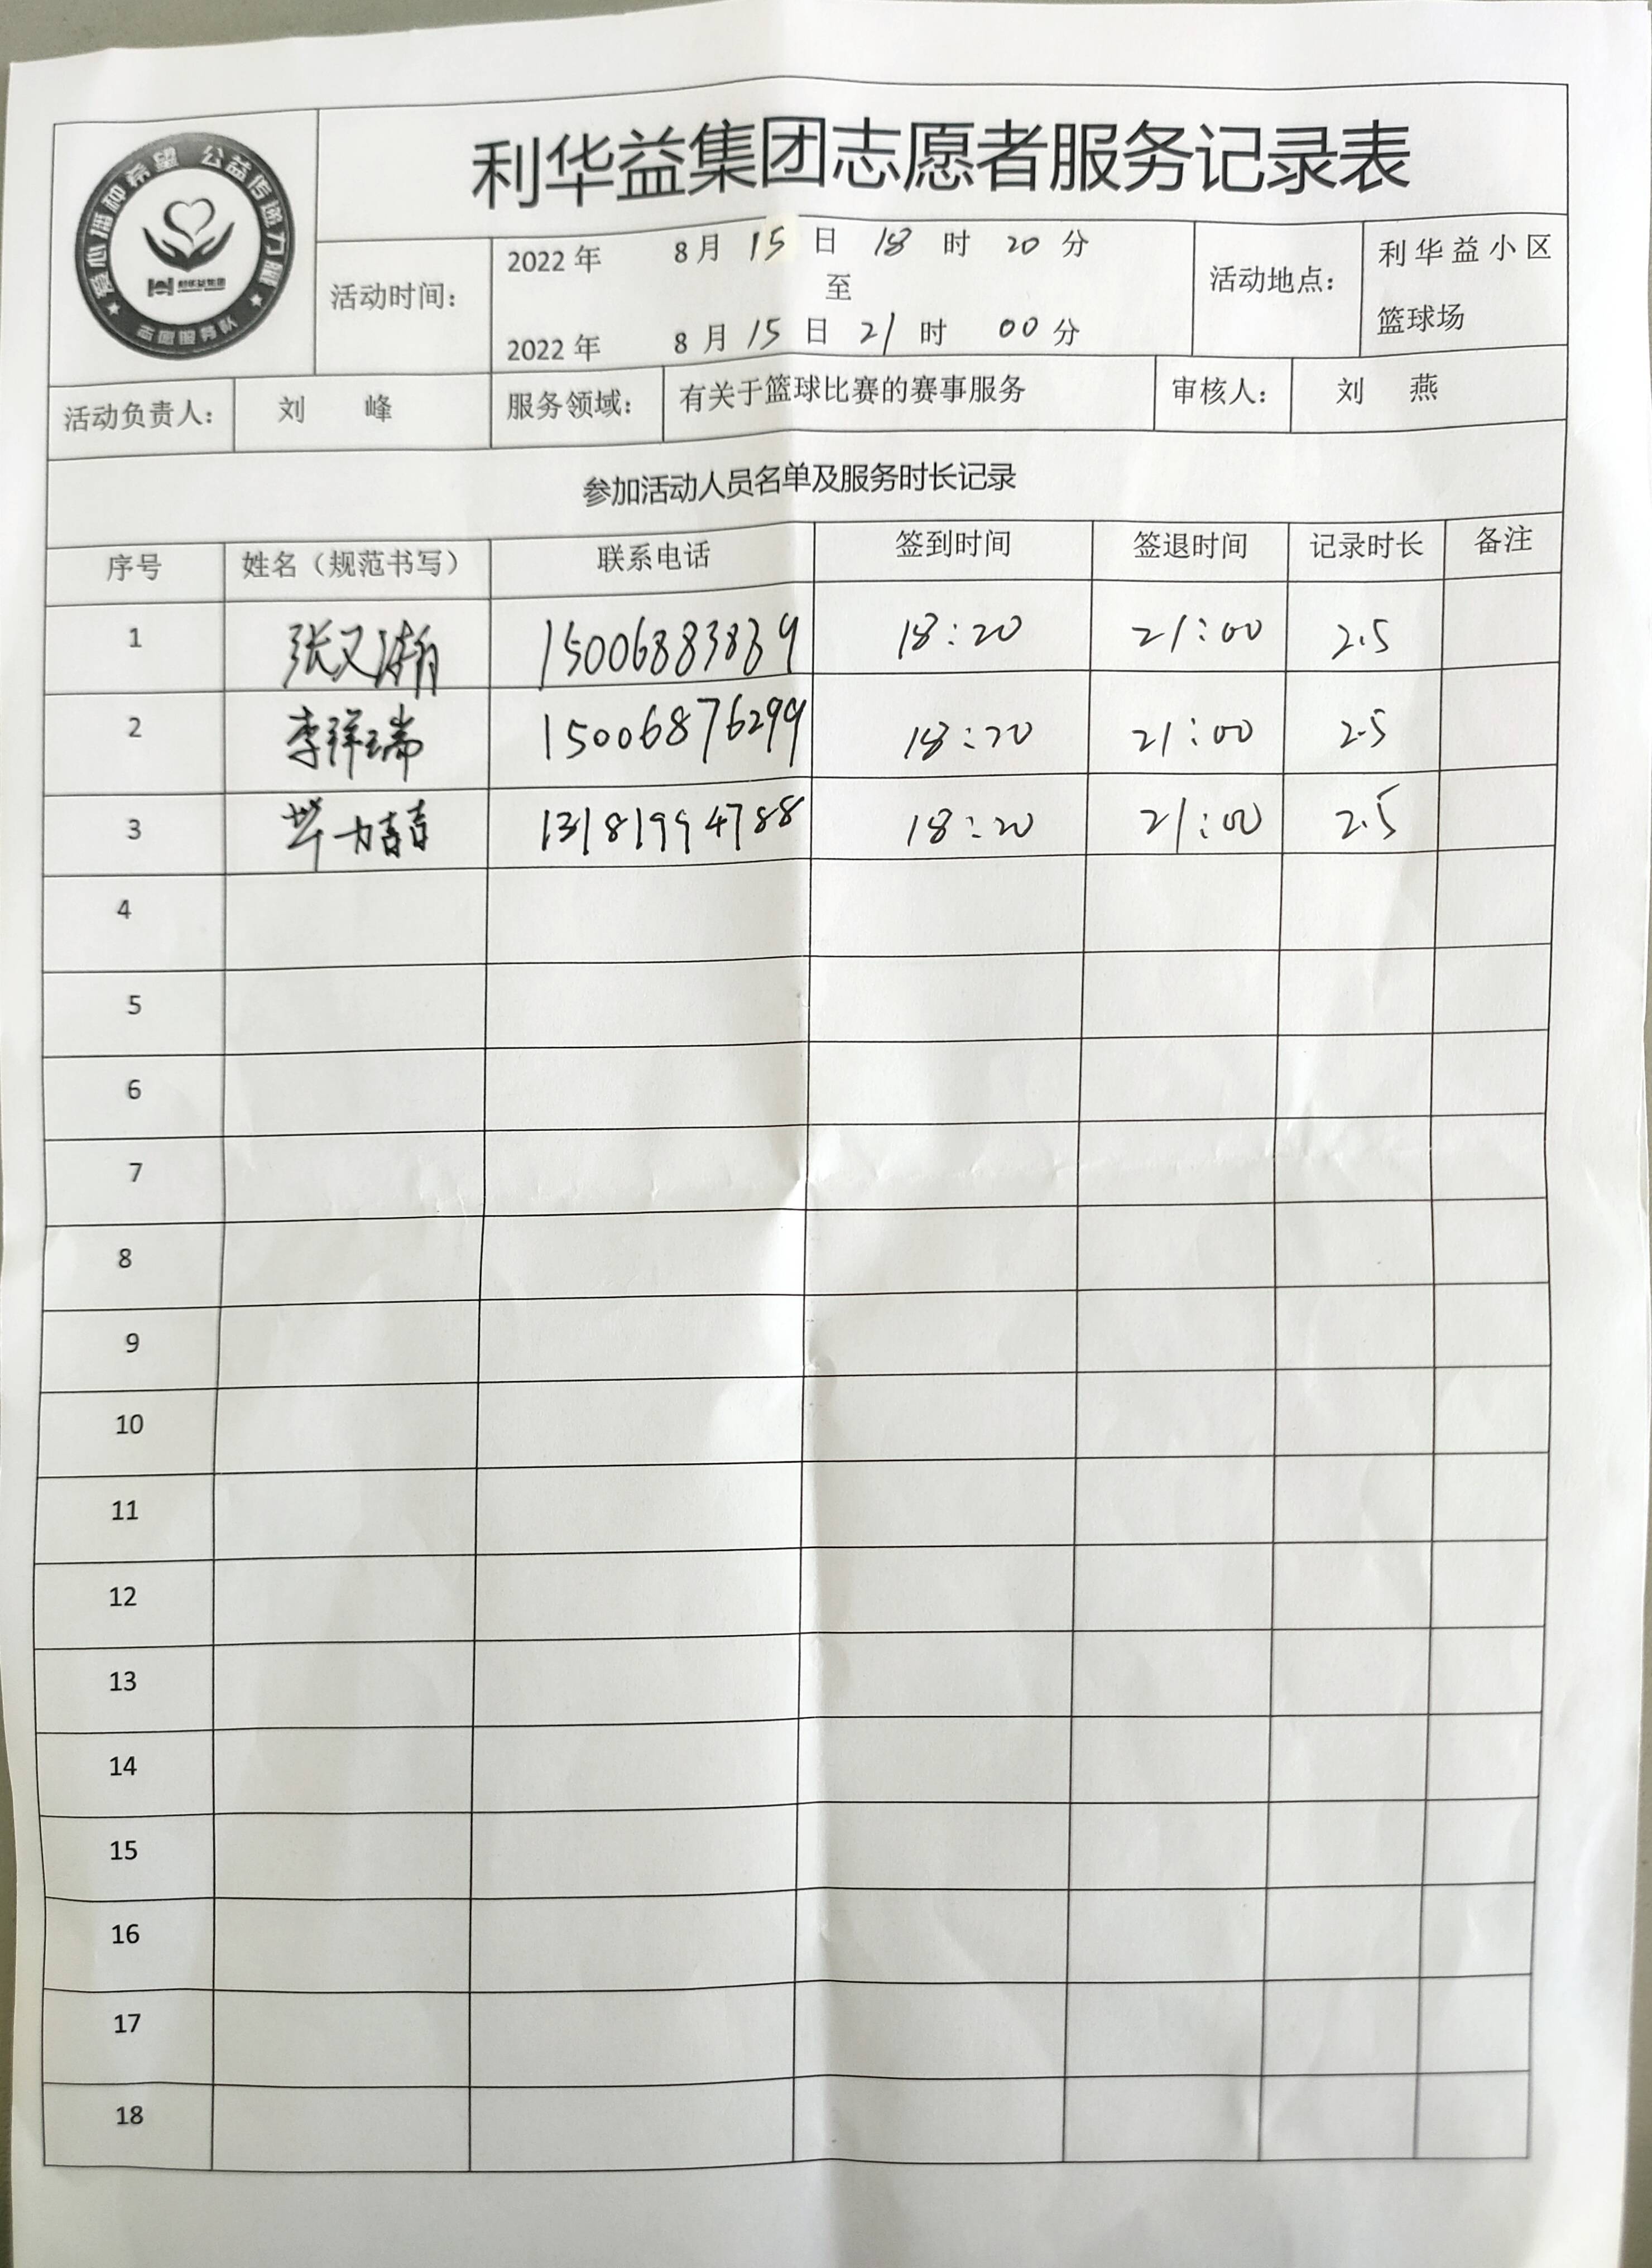 爱心播种希望 公益传递力量
利华益集团
利华益集团志愿者服务记录表
活动时间：
2022年 8月15日18时20分
至
2022年 8月15日21时00分
活动地点：
利华益小区
篮球场
活动负责人： 刘 峰 服务领域： 有关于篮球比赛的赛事服务 审核人： 刘 燕
参加活动人员名单及服务时长记录
序号 姓名（规范书写） 联系电话 签到时间 签退时间 记录时长 备注
1 张又瀚 15006883839 18:20 21:00 2.5
2 李祥瑞 15006876299 18:20 21:00 2.5
3 13181994788 18:20 21:00 2.5
4
5
6
7
8
9
10
11
12
13
14
15
16
17
18